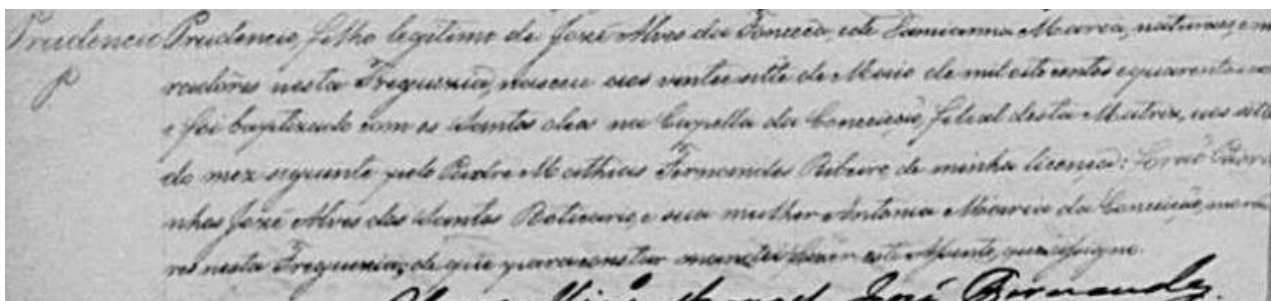 Prudencio Prudencio, filho legitimo de José Alves da Fonseca, e de Damianna Maria, naturaes, e m
P radôres nesta Freguezia, nasceu aos vinte sette de Maio de mil oito centos e quarenta e
e foi baptizado com os Santos oleos na Capella da Conceição, filial desta Matriz, aos
do mez seguinte pelo Padre Mathias Fernandes Ribeiro de minha licença: Erão Padri
nhos José Alves dos Santos Boticario, e sua mulher Antonia Maria da Conceição, mora
res nesta Freguezia, de que para constar mandei fazer este Assento, que assigno.
José Fernandes